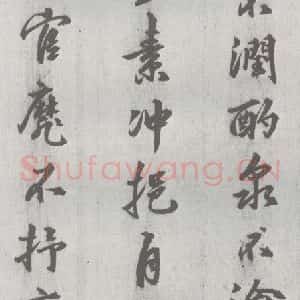 潤酌泉不
素冲挹自
官靡不抒
Shufawang.CN